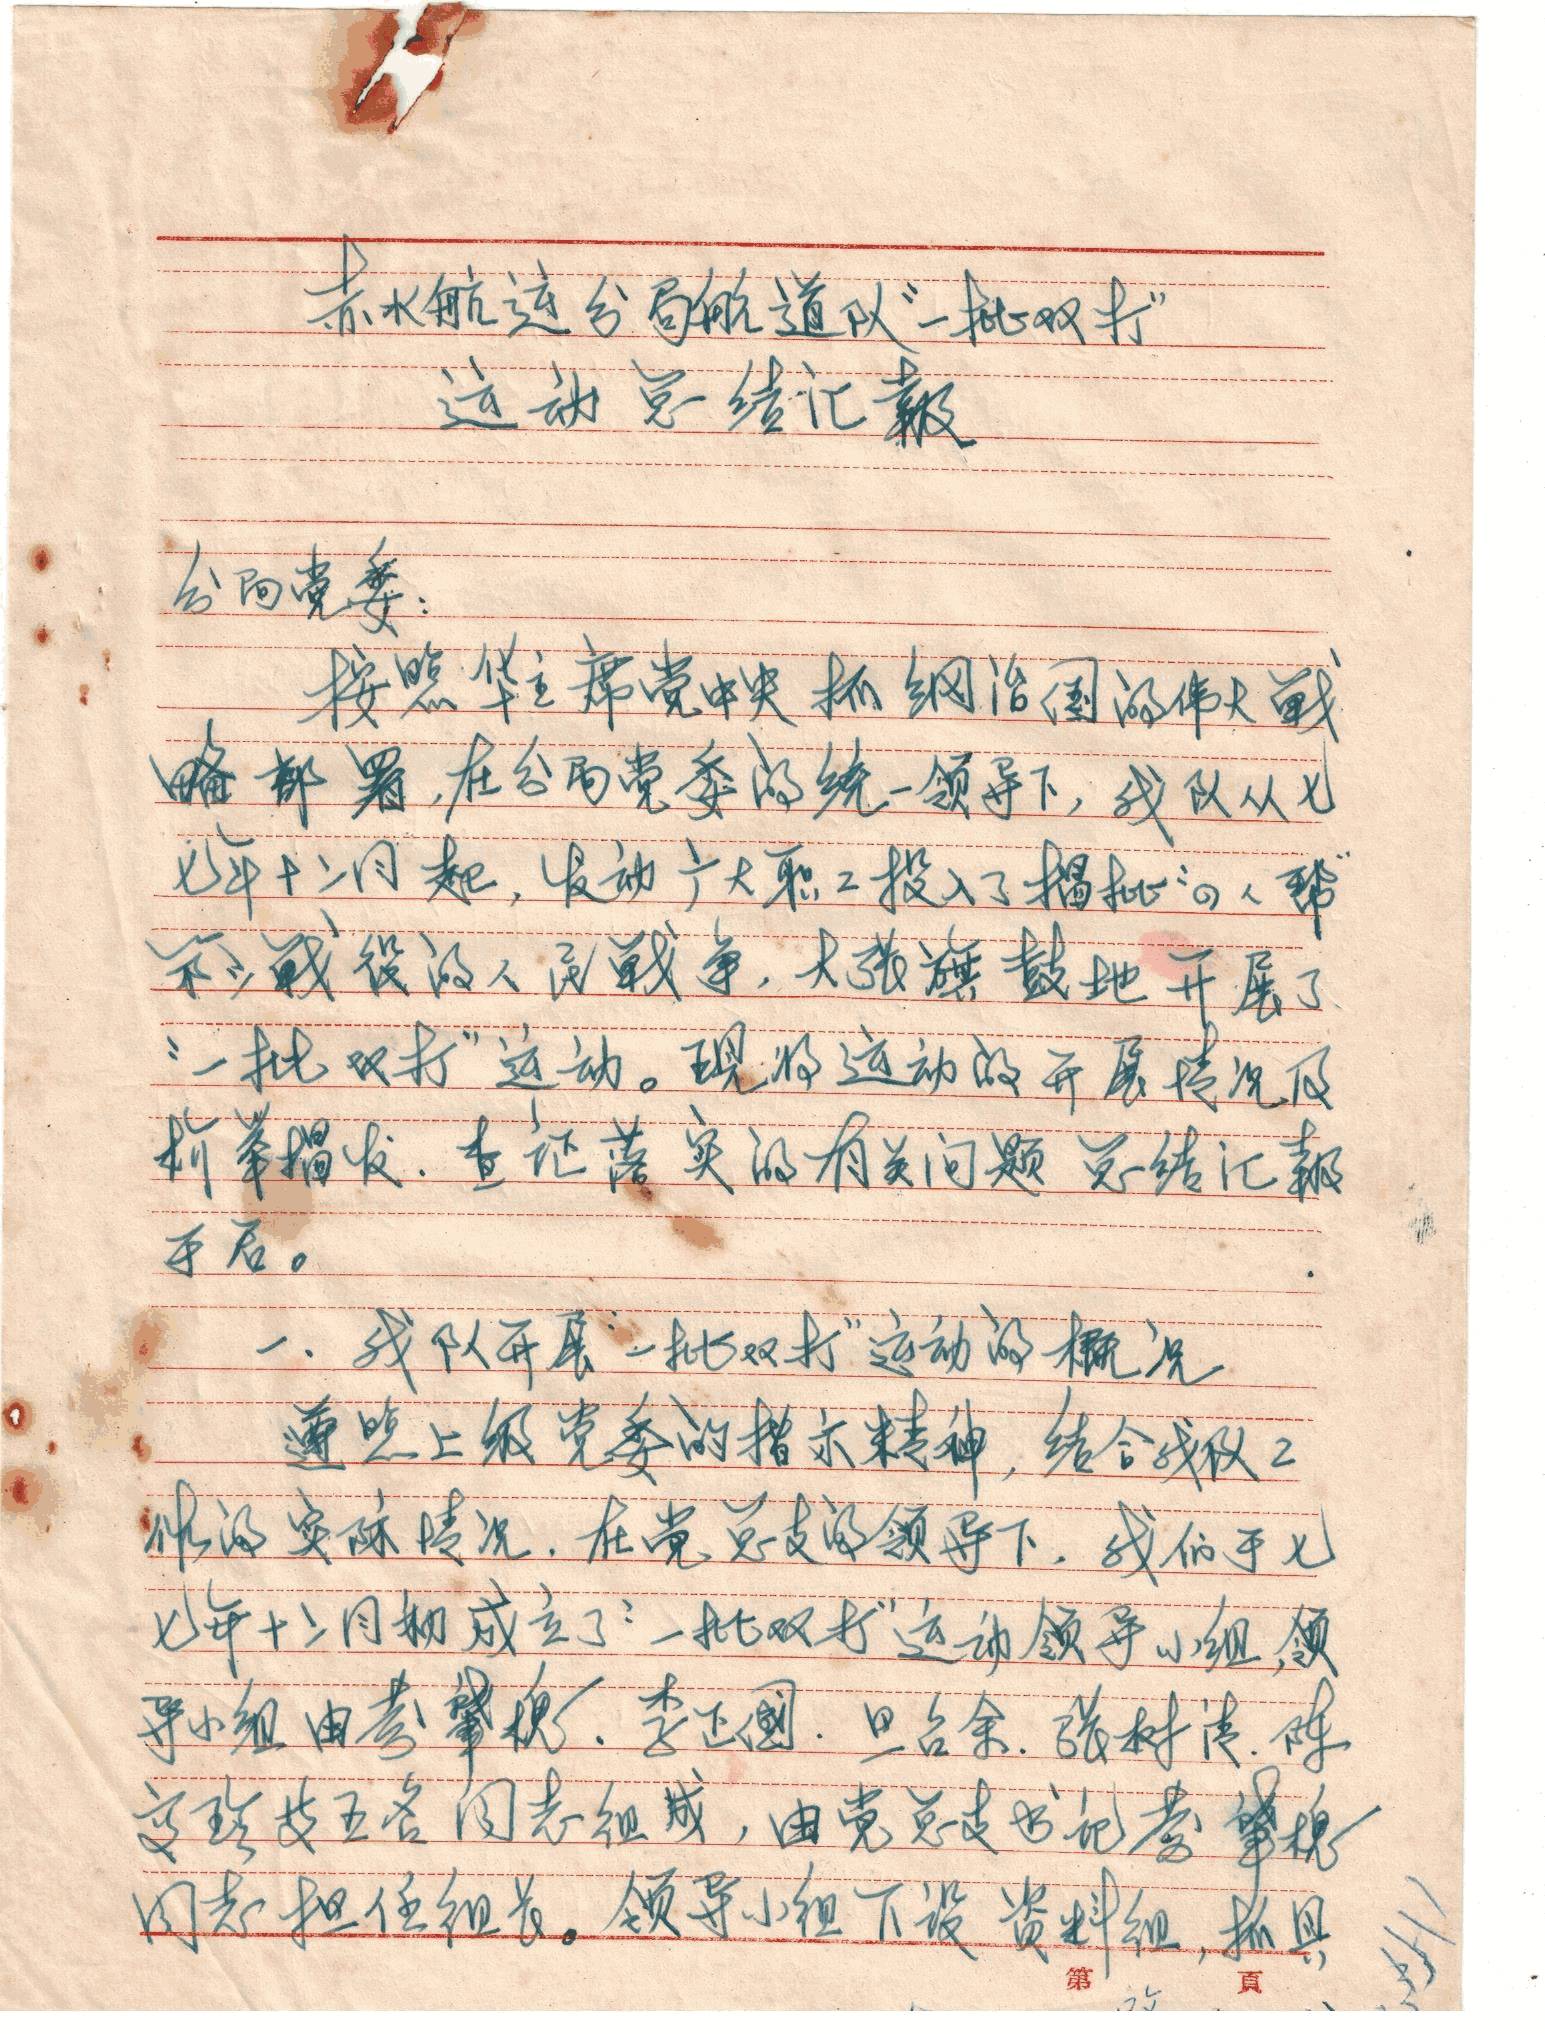 赤水航运分局航道队“一批双打”
运动总结汇報
分局党委：
按照华主席党中央抓纲治国的伟大战
略部署，在分局党委的统一领导下，我队从七
七年十二月起，发动广大职工投入了揭批“四人帮”
第三战役的人民战争，大张旗鼓地开展了
“一批双打”运动。现将运动的开展情况及
析举揭发、查证落实的有关问题总结汇報
于后。
一、我队开展“一批双打”运动的概况
遵照上级党委的指示精神，结合我队工
作的实际情况，在党总支的领导下，我们于七
七年十二月初成立了“一批双打”运动领导小组，领
导小组由肇槐、李正國、余、張树清、陈
文珍等五名同志组成，由党总支书记肇槐
同志担任组长。领导小组下设资料组，抓具
第 頁